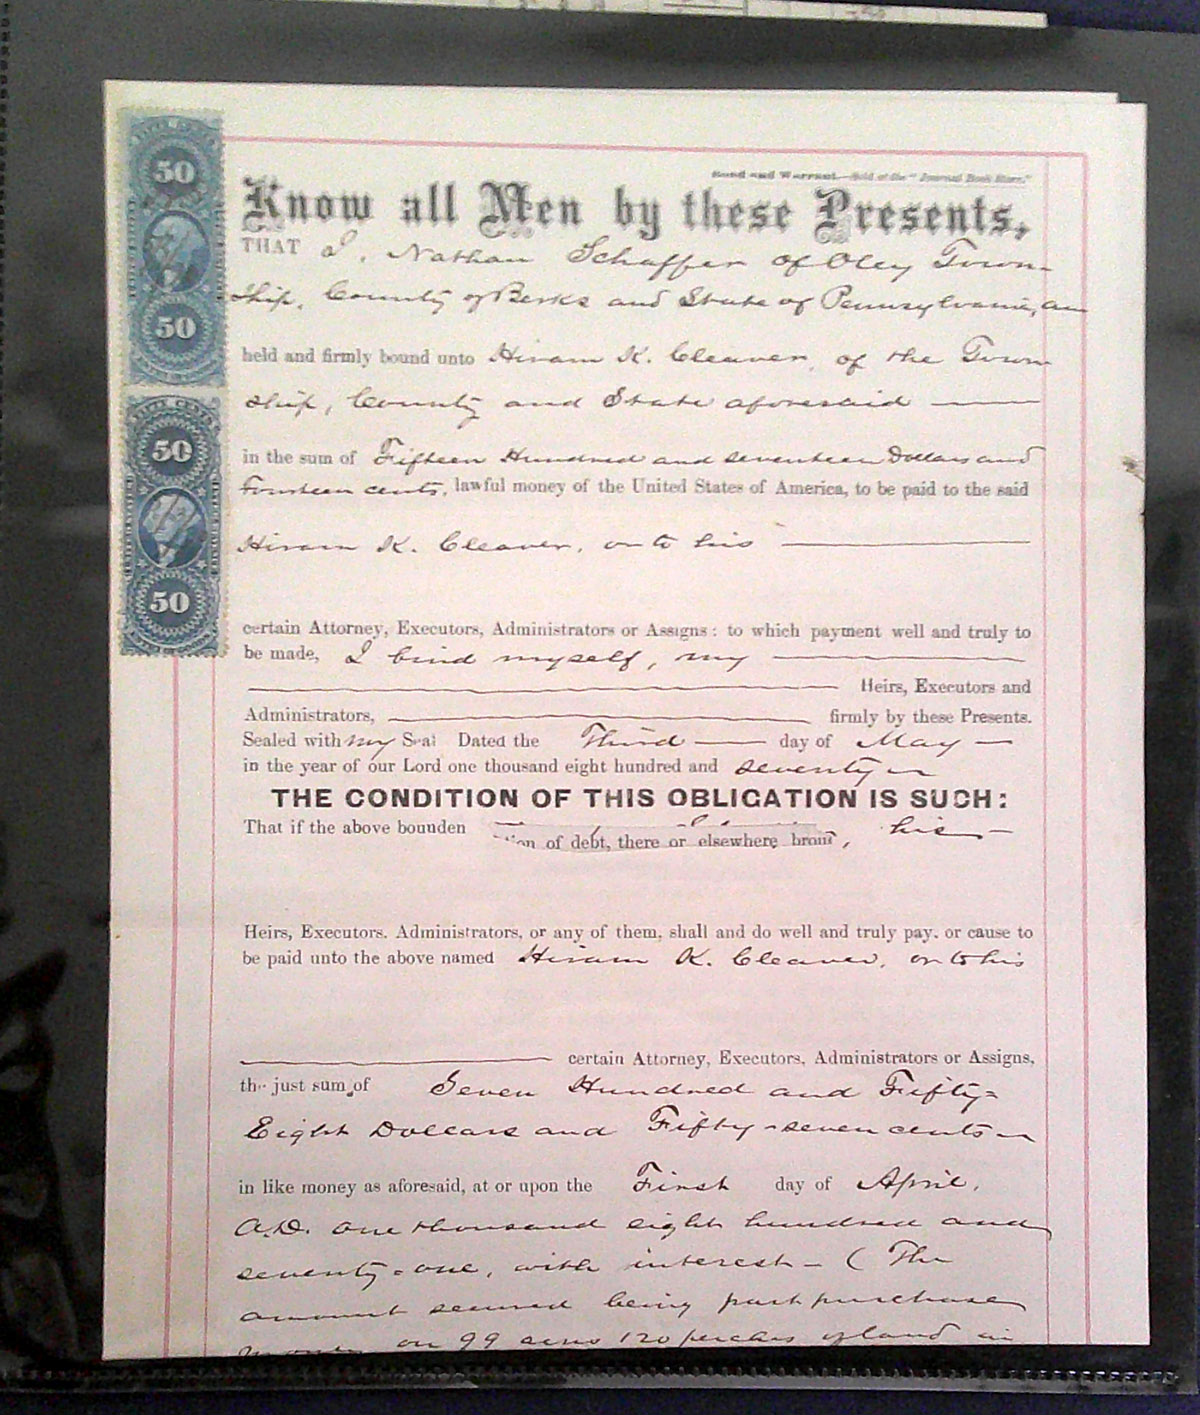 50
50
50
50
Bond and Warrant.—Sold at the "Journal Book Store."
Know all Men by these Presents,
THAT I, Nathan Schaffer of Oley Town-
ship, County of Berks and State of Pennsylvania, am
held and firmly bound unto Hiram K. Cleaver, of the Town
ship, County and State aforesaid
in the sum of Fifteen Hundred and seventeen Dollars and
Fourteen cents, lawful money of the United States of America, to be paid to the said
Hiram K. Cleaver, or to his
certain Attorney, Executors, Administrators or Assigns: to which payment well and truly to
be made, I bind myself, my
Heirs, Executors and
Administrators, firmly by these Presents.
Sealed with my Seal Dated the Third day of May
in the year of our Lord one thousand eight hundred and seventy
THE CONDITION OF THIS OBLIGATION IS SUCH:
That if the above bounden his
of debt, there or elsewhere
Heirs, Executors. Administrators, or any of them, shall and do well and truly pay. or cause to
be paid unto the above named Hiram K. Cleaver, or to his
certain Attorney, Executors, Administrators or Assigns,
the just sum of Seven Hundred and Fifty-
Eight Dollars and Fifty-seven cents
in like money as aforesaid, at or upon the First day of April,
A.D. one thousand eight hundred and
seventy-one, with interest - (The
amount secured being part purchase
money on 99 acres 120 perches of land in